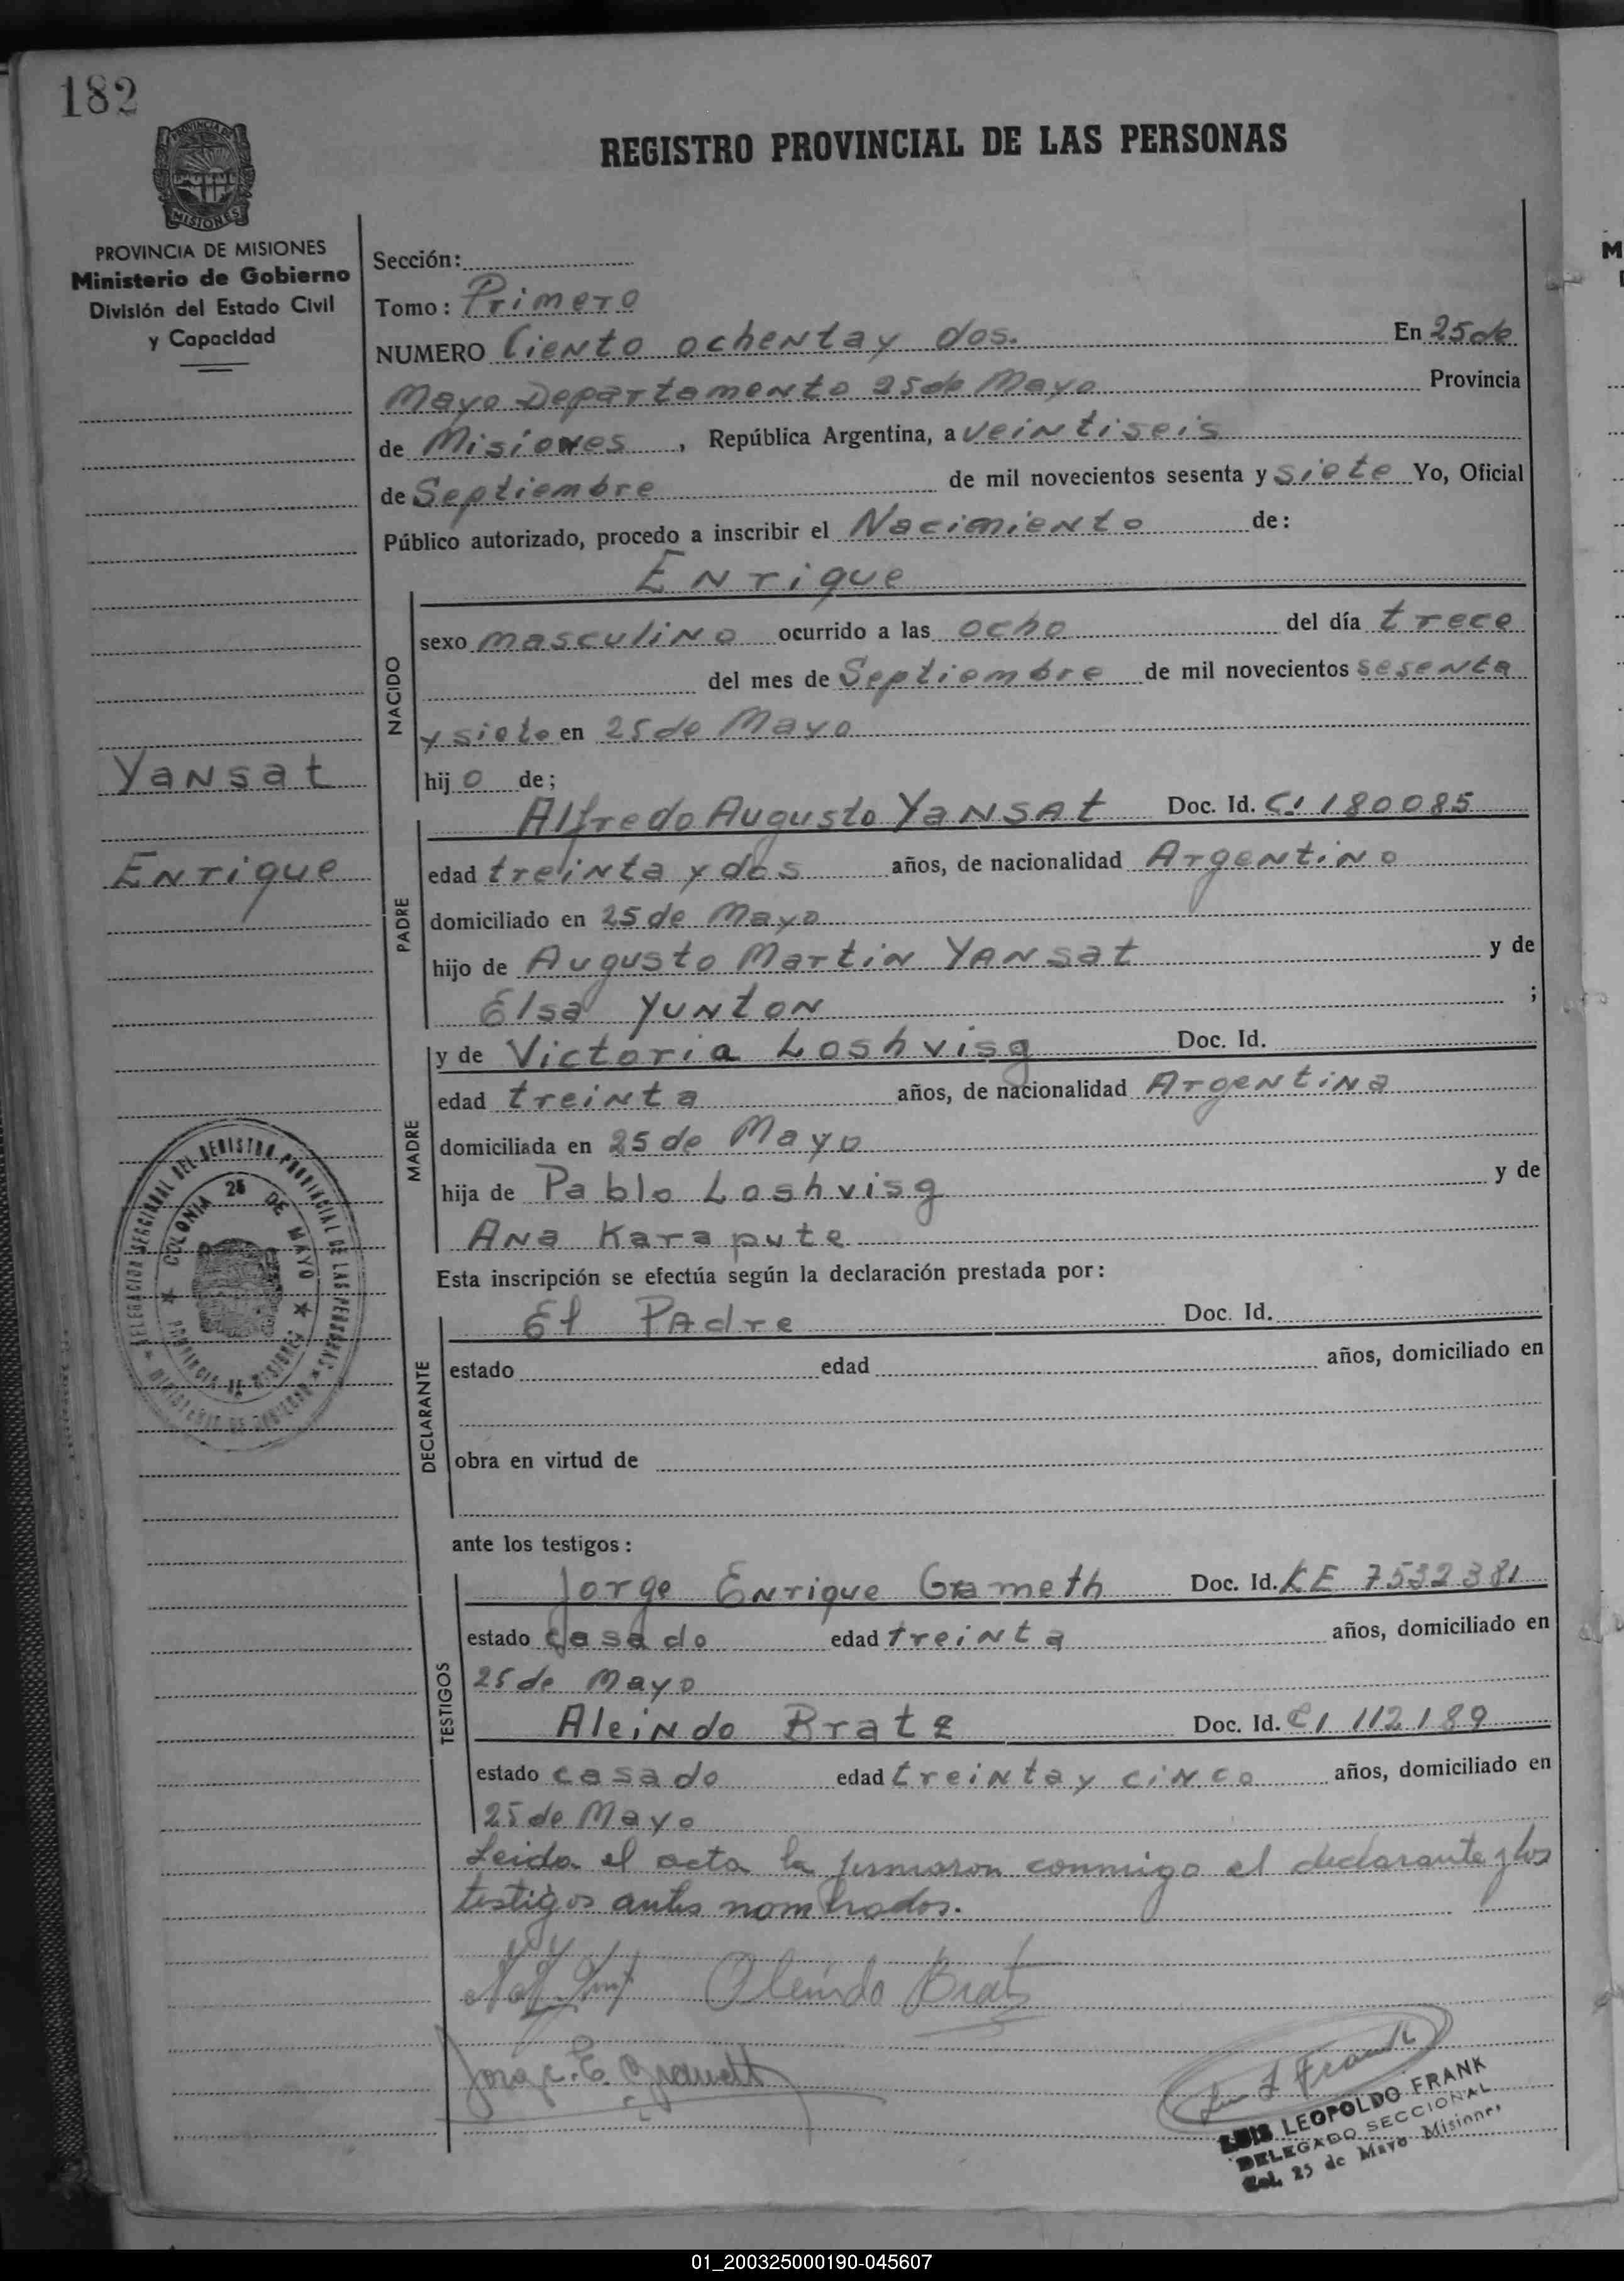 182
REGISTRO PROVINCIAL DE LAS PERSONAS
PROVINCIA DE MISIONES
Ministerio de Gobierno
División del Estado Civil
y Capacidad
Sección:
Tomo: Primero
NUMERO Ciento ochenta y dos. En 25 de
Mayo Departamento 25 de Mayo Provincia
de Misiones, República Argentina, a veintiseis
de Septiembre de mil novecientos sesenta y siete Yo, Oficial
Público autorizado, procedo a inscribir el Nacimiento de:
Enrique
NACIDO
sexo masculino ocurrido a las ocho del día trece
del mes de Septiembre de mil novecientos sesenta
y siete en 25 de Mayo
hijo de;
Yansat
Enrique
PADRE
Alfredo Augusto Yansat Doc. Id. C.I 180085
edad treinta y dos años, de nacionalidad Argentino
domiciliado en 25 de Mayo
hijo de Augusto Martin Yansat y de
Elsa Yunton ;
MADRE
y de Victoria Loshvisg Doc. Id.
edad treinta años, de nacionalidad Argentina
domiciliada en 25 de Mayo
hija de Pablo Loshvisg y de
Ana Karapute
Esta inscripción se efectúa según la declaración prestada por:
DECLARANTE
El Padre Doc. Id.
estado edad años, domiciliado en
obra en virtud de
ante los testigos:
TESTIGOS
Jorge Enrique Grameth Doc. Id. KE 7532381
estado casado edad treinta años, domiciliado en
25 de Mayo
Aleindo Bratz Doc. Id. CI 112189
estado casado edad treinta y cinco años, domiciliado en
25 de Mayo
Leida el acta la firmaron conmigo el declarante y los
testigos antes nombrados.
DELEGACION SECCIONAL DEL REGISTRO PROVINCIAL DE LAS PERSONAS
COLONIA 25 DE MAYO
PROVINCIA DE MISIONES
MINISTERIO DE GOBIERNO
Oleindo Bratz
LUIS LEOPOLDO FRANK
DELEGADO SECCIONAL
Col. 25 de Mayo Misiones
01_200325000190-045607